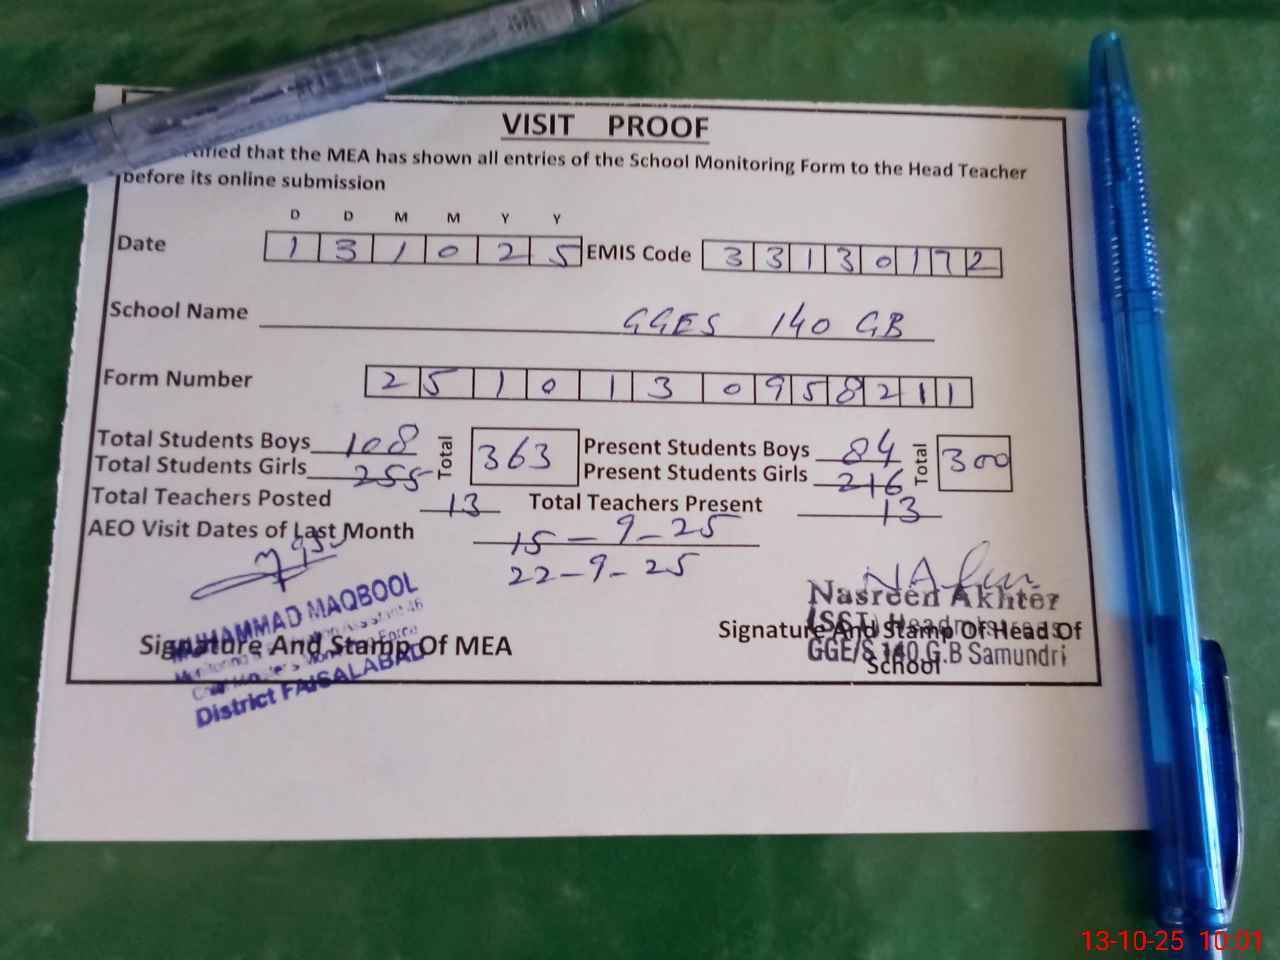 VISIT PROOF
that the MEA has shown all entries of the School Monitoring Form to the Head Teacher
before its online submission
D D M M Y Y
Date 1 3 1 0 2 5 EMIS Code 3 3 1 3 0 1 7 2
School Name GGES 140 GB
Form Number 2 5 1 0 1 3 0 9 5 8 2 1 1
Total Students Boys 108 Total 363 Present Students Boys 84 Total 300
Total Students Girls 255 Present Students Girls 216
Total Teachers Posted 13 Total Teachers Present 13
AEO Visit Dates of Last Month 15-9-25
22-9-25
MUHAMMAD MAQBOOL
Signature And Stamp Of MEA
District FAISALABAD
Nasreen Akhter
(SST) Headmistress
Signature And Stamp Of Head Of
GGE/S 140 G.B Samundri
School
13-10-25 10:01